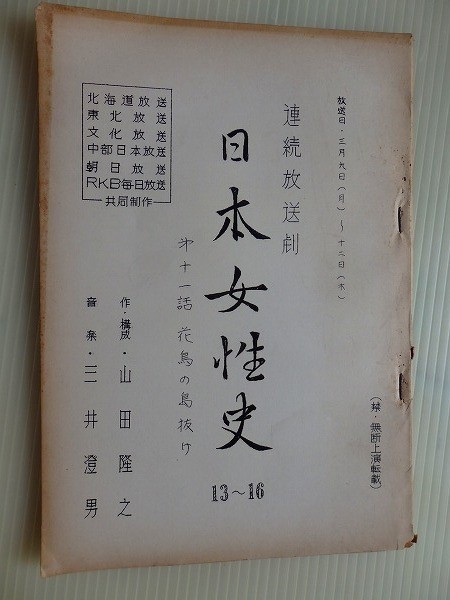 放送日・三月九日(月)〜十二日(木)
(禁・無断上演転載)
連続放送劇
日本女性史
13〜16
第十一話 花鳥の島抜け
作・構成・山田隆之
音楽・三井澄男
北海道放送
東北放送
文化放送
中部日本放送
朝日放送
RKB毎日放送
共同制作